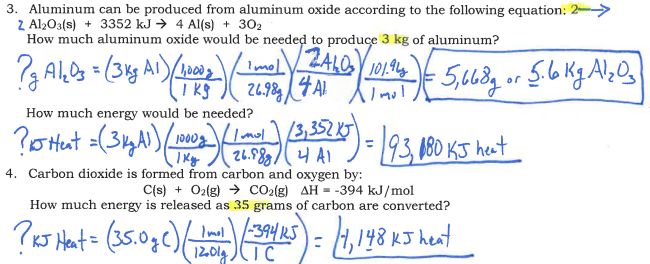 3. Aluminum can be produced from aluminum oxide according to the following equation: 2 →
2 Al₂O₃(s) + 3352 kJ → 4 Al(s) + 3O₂
How much aluminum oxide would be needed to produce 3 kg of aluminum?
? g Al₂O₃ = (3kg Al) (1,000g / 1 kg) (1 mol / 26.98g) (2 Al₂O₃ / 4 Al) (101.96g / 1 mol) = 5,668g or 5.6 Kg Al₂O₃
How much energy would be needed?
? KJ Heat = (3kg Al) (1000g / 1 Kg) (1 mol / 26.98g) (3,352 KJ / 4 Al) = 93,180 KJ heat
4. Carbon dioxide is formed from carbon and oxygen by:
C(s) + O₂(g) → CO₂(g) ΔH = -394 kJ/mol
How much energy is released as 35 grams of carbon are converted?
? KJ Heat = (35.0g C) (1 mol / 12.01g) (-394 KJ / 1 C) = -1,148 KJ heat